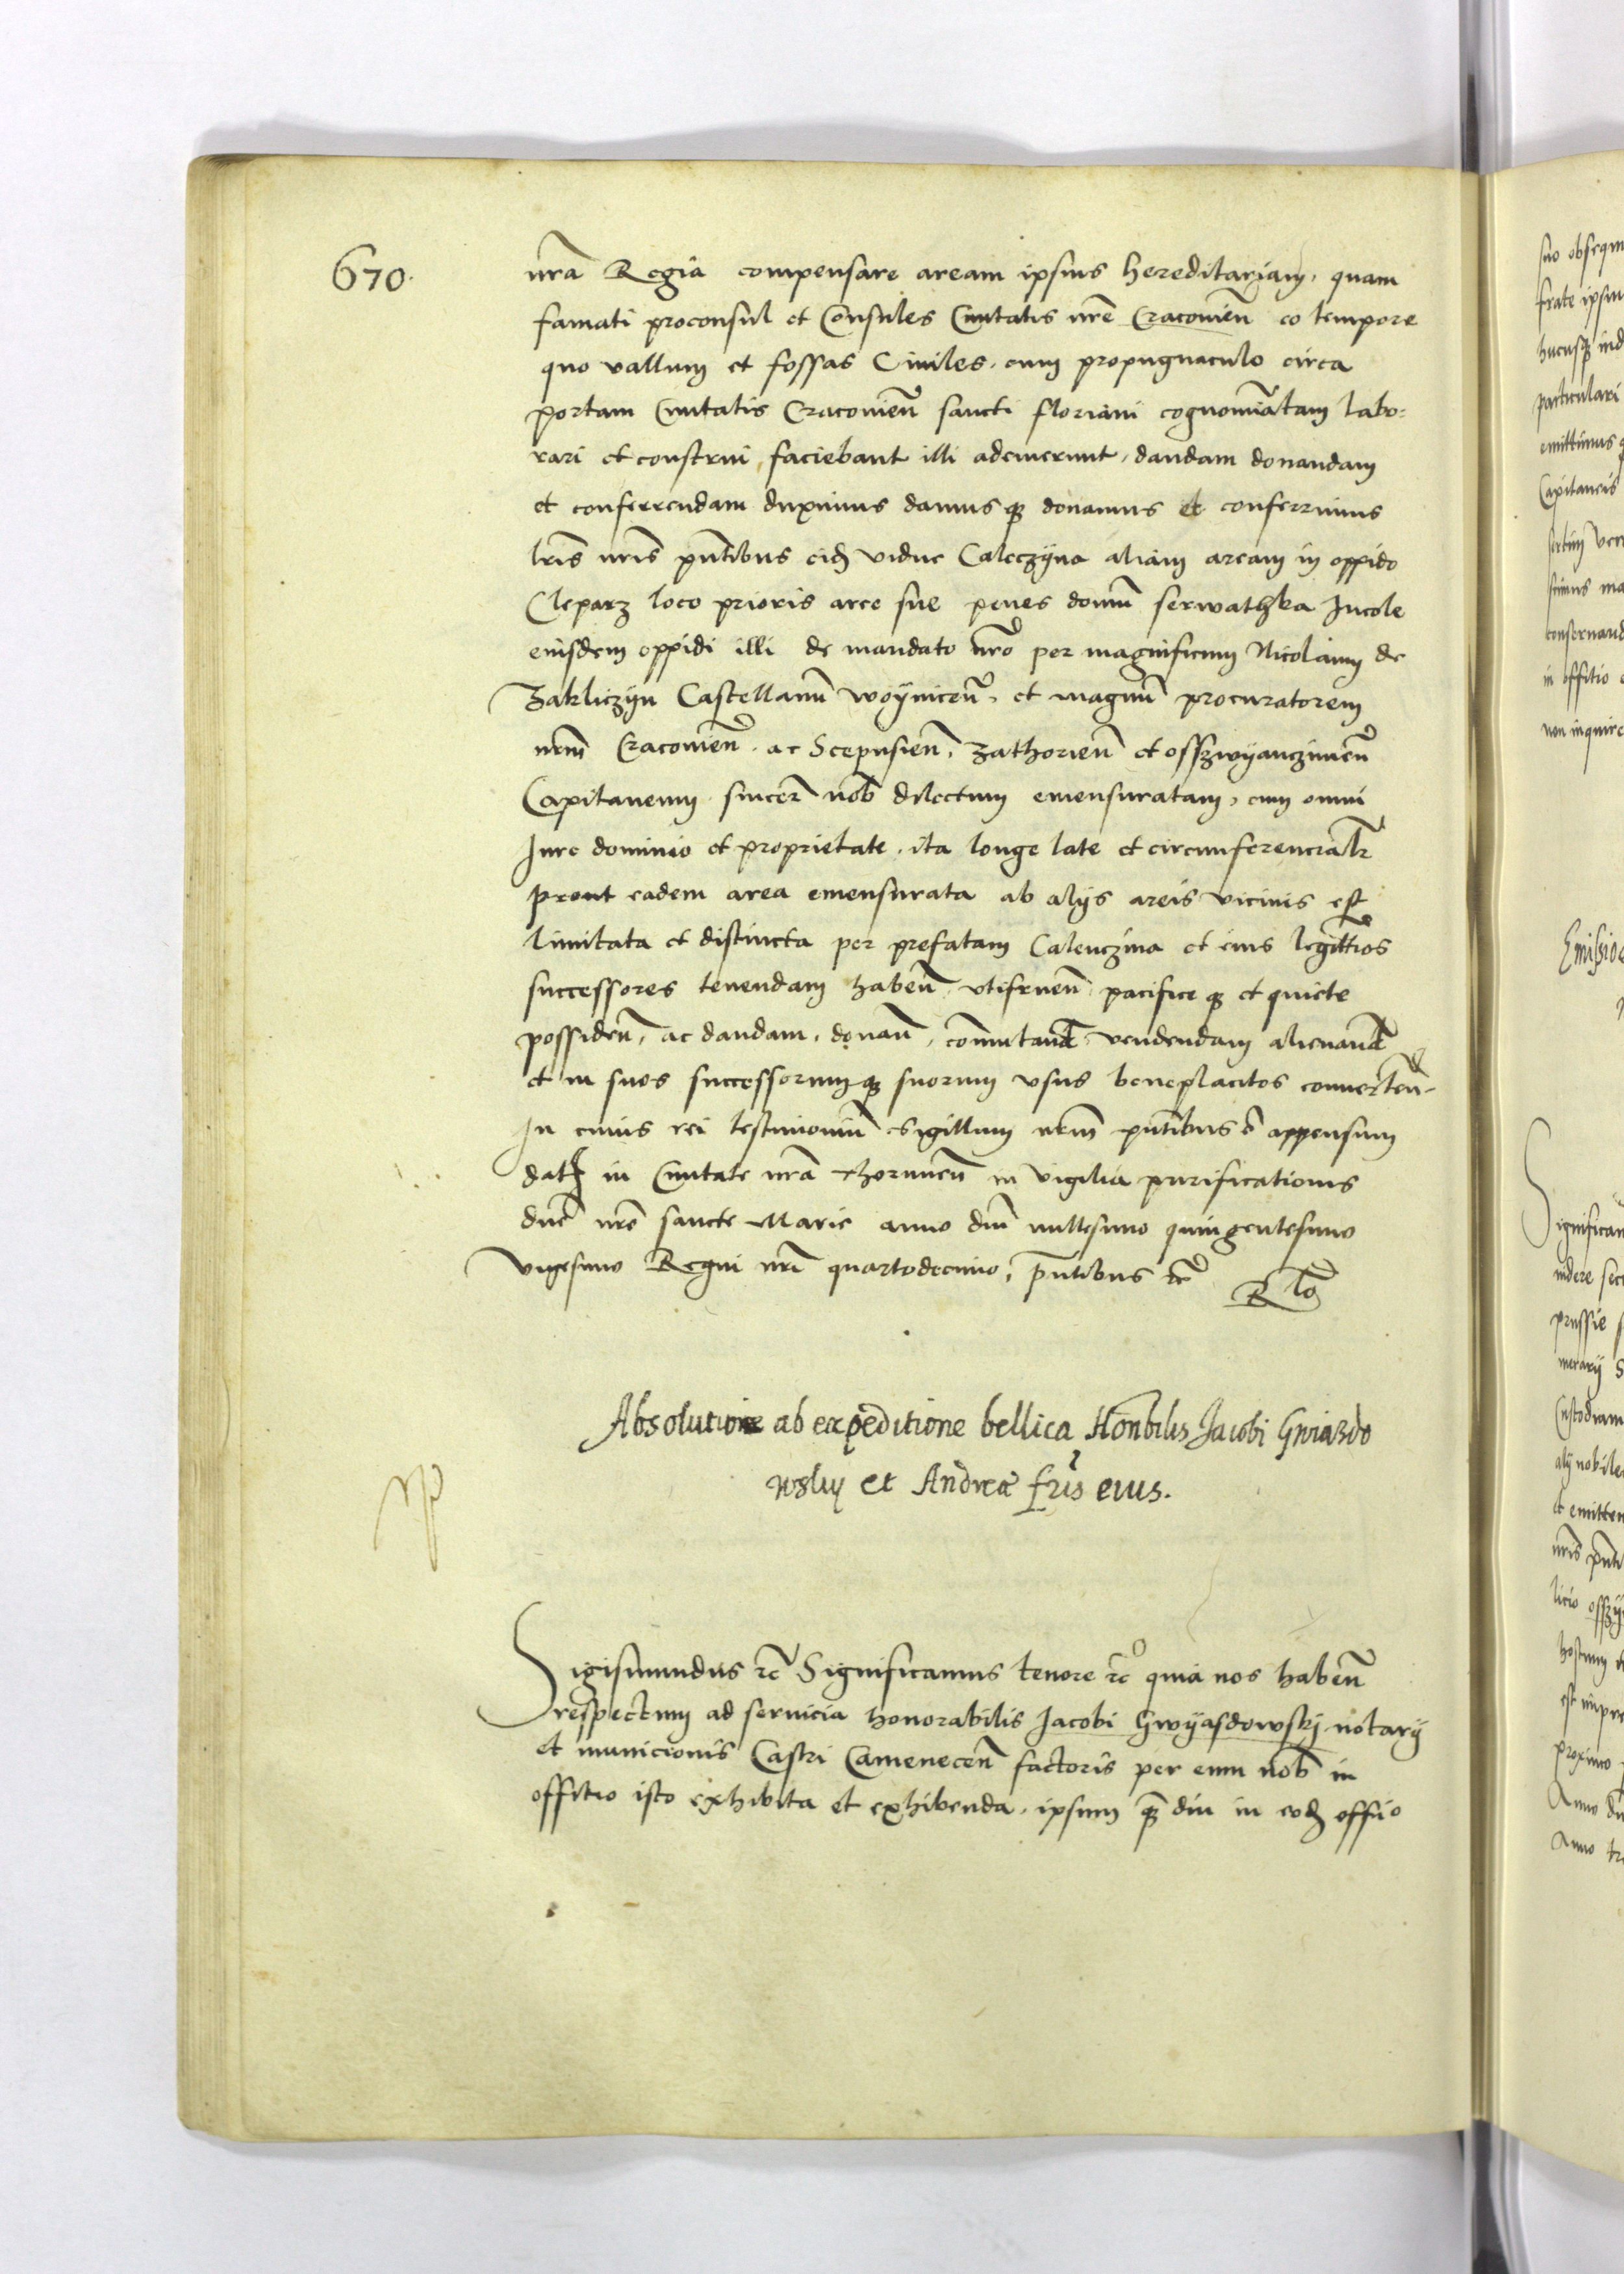 670.
nrã Regia compensare aream ipsius hereditariam, quam
famati proconsul et Consules Ciuitatis nrẽ Cracovieñ eo tempore
quo vallum et fossas Ciuiles, cum propugnaculo circa
portam Ciuitatis Cracovieñ sancti floriani cognomiatam labo=
rari et construi faciebant illi ademerunt, dandam donandam
et conferrendam duximus damusqʒ donamus et conferrimus
lris nris pñtibus eidẽ vidue Caleczyna aliam aream in oppido
Cleparz loco prioris aree sue penes domũ serwathka Incole
eiusdem oppidi illi de mandato nrõ per magnificum Nicolaum de
Zakliczyn Castellanũ woyniceñ, et magnũ procuratorem
nrm̃ Cracovieñ, ac Scepusieñ, Zathorieñ et osszwyanczimeñ
Capitaneum sincer̃ nob̃ dilectum emensuratam, cum omni
Iure dominio et proprietate, ita longe late et circumferencialr̃
prout eadem area emensurata ab alijs areis vicinis est
limitata et distincta per prefatam Calenczina et eius legittĩos
successores tenendam habeñ, vtifrueñ, pacificeqʒ et quiete
possideñ, ac dandam, donañ, com̃utand̃ vendendam alienand̃
et in suos successorumqʒ suorum vsus beneplacitos conuerteñ.
In cuius rei testimoniũ Sigillum nrm̃ pñtibus ẽ appensum
dat̃ in Ciuitate nrã thoruneñ in vigilia purificationis
dñe nrẽ sancte Marie anno dñi millesimo quingentesimo
vigesimo Regni nrĩ quartodecimo, pñtibus rc̃ Rlõ
Absolutione ab expeditione bellica Honbilis Jacobi Gwiazdo
wsky et Andreæ fr̃is eius.
Sigismundus rc̃ Significamus tenore rc̃ quia nos habeñ
respectum ad seruicia honorabilis Jacobi Gwyasdowskj notarij
et municionis Castri Cameneceñ factoris per eum nob̃ in
offitio isto exhibita et exhibenda, ipsum qʒ̃ diu in eodẽ offitio